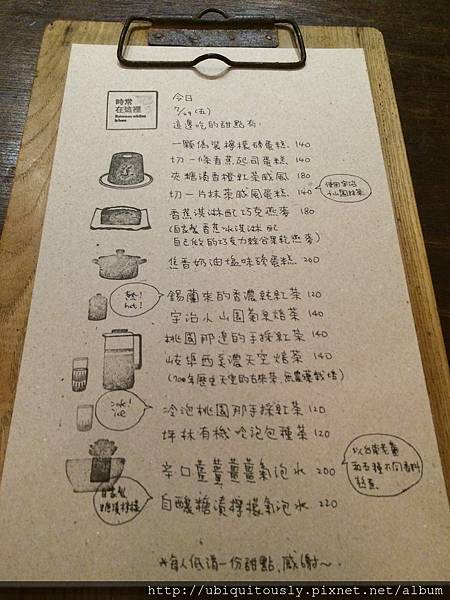 時常
在這裡
今日
7/29 (五)
這邊吃的甜點有:
一顆偽裝檸檬磅蛋糕. 140
切一條香蕉起司蛋糕. 140
夾糖漬香橙紅茶戚風 180
切一片抹茶戚風蛋糕. 140
使用宇治
小山園抹茶.
香蕉淇淋配巧克燕麥 180
(自家製香蕉冰淇淋配
自己做的巧克力綜合果乾燕麥)
焦香奶油塩味磅蛋糕. 200
熱!
hot!
錫蘭來的香濃純紅茶 120
宇治小山園菊泉焙茶 140
桃園那邊的手採紅茶 140
岐埠西美濃天空焙茶 140
(700年歷史天空的古來茶,無農藥栽培)
冰!
ice
冷泡桃園那手採紅茶 120
坪林有機冷泡包種茶 120
辛口薑薑薑薑氣泡水 200
以台東老薑
和五種不同香料
熬煮.
自釀糖漬檸檬氣泡水 220
自家製
糖漬檸檬
*每人低消一份甜點,感謝~
http://ubiquitously.pixnet.net/album